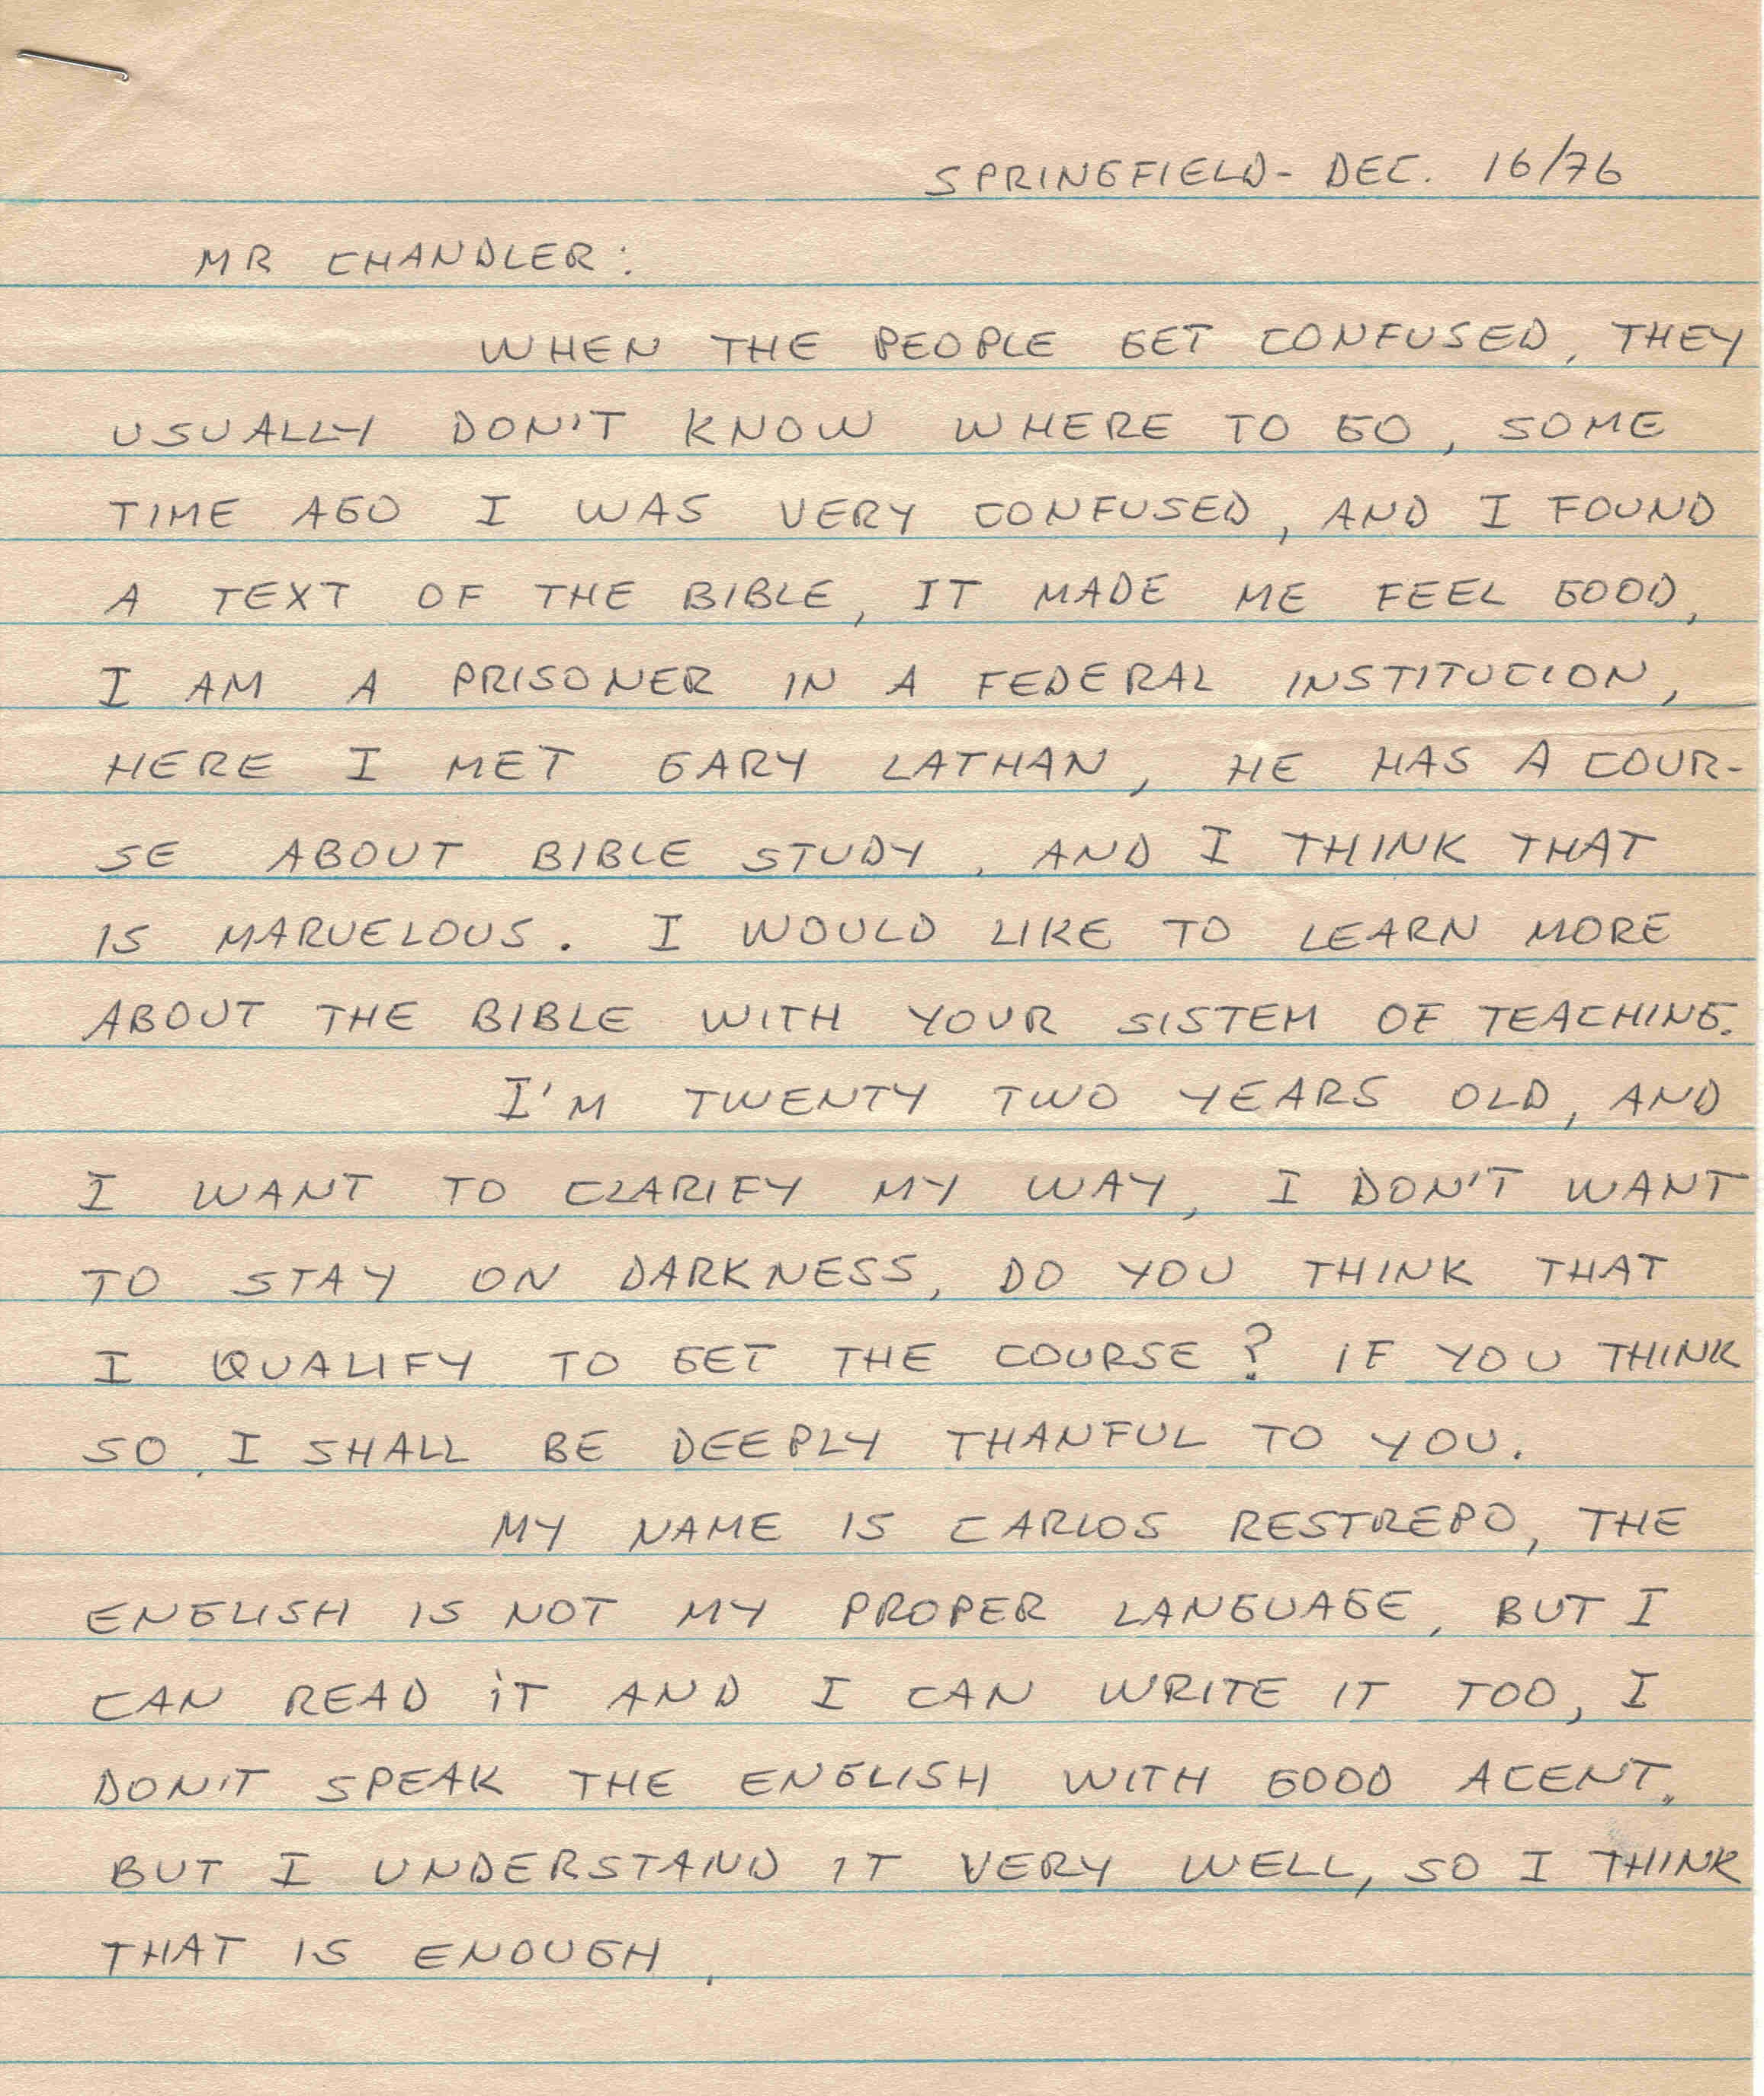 SPRINGFIELD- DEC. 16/76
MR CHANDLER:
WHEN THE PEOPLE GET CONFUSED, THEY
USUALLY DON'T KNOW WHERE TO GO, SOME
TIME AGO I WAS VERY CONFUSED, AND I FOUND
A TEXT OF THE BIBLE, IT MADE ME FEEL GOOD,
I AM A PRISONER IN A FEDERAL INSTITUCION,
HERE I MET GARY LATHAN, HE HAS A COUR-
SE ABOUT BIBLE STUDY, AND I THINK THAT
IS MARVELOUS. I WOULD LIKE TO LEARN MORE
ABOUT THE BIBLE WITH YOUR SISTEM OF TEACHING.
I'M TWENTY TWO YEARS OLD, AND
I WANT TO CLARIFY MY WAY, I DON'T WANT
TO STAY ON DARKNESS, DO YOU THINK THAT
I QUALIFY TO GET THE COURSE? IF YOU THINK
SO, I SHALL BE DEEPLY THANFUL TO YOU.
MY NAME IS CARLOS RESTREPO, THE
ENGLISH IS NOT MY PROPER LANGUAGE, BUT I
CAN READ iT AND I CAN WRITE IT TOO, I
DON'T SPEAK THE ENGLISH WITH GOOD ACENT,
BUT I UNDERSTAND IT VERY WELL, SO I THINK
THAT IS ENOUGH.